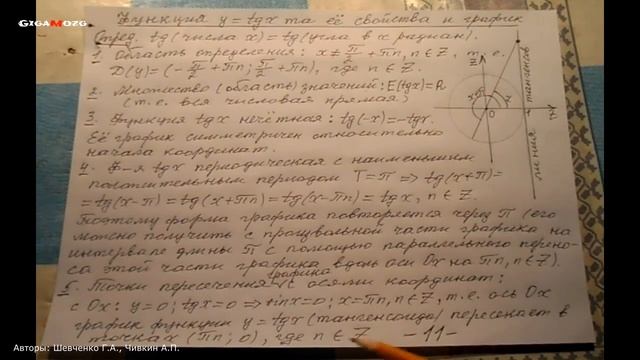 GIGAMOZG
Функция y = tgx та её свойства и график
Опред. tg(числа x) = tg(угла в x радиан).
1. Область определения: x ≠ π/2 + πn, n ∈ Z, т.е.
D(y) = (-π/2 + πn; π/2 + πn), где n ∈ Z.
2. Множество (область) значений: E(tgx) = R
(т.е. вся числовая прямая)
3. Функция tgx нечётная: tg(-x) = -tgx.
Её график симметричен относительно
начала координат.
4. Ф-я tgx периодическая с наименьшим
положительным периодом T = π ⇒ tg(x+π) =
= tg(x-π) = tg(x+πn) = tg(x-πn) = tgx, n ∈ Z.
Поэтому форма графика повторяется через π (его
можно получить с произвольной части графика на
интервале длины π с помощью параллельного перено-
са этой части графика вдоль оси Ox на πn, n ∈ Z).
5. Точки пересечения графика с осями координат:
с Ox: y = 0; tgx = 0 ⇒ sinx = 0; x = πn, n ∈ Z, т.е. ось Ox
график функции y = tgx (тангенсоида) пересекает в
точках (πn; 0), где n ∈ Z
-11-
линия тангенсов
0
Авторы: Шевченко Г.А., Чивкин А.П.